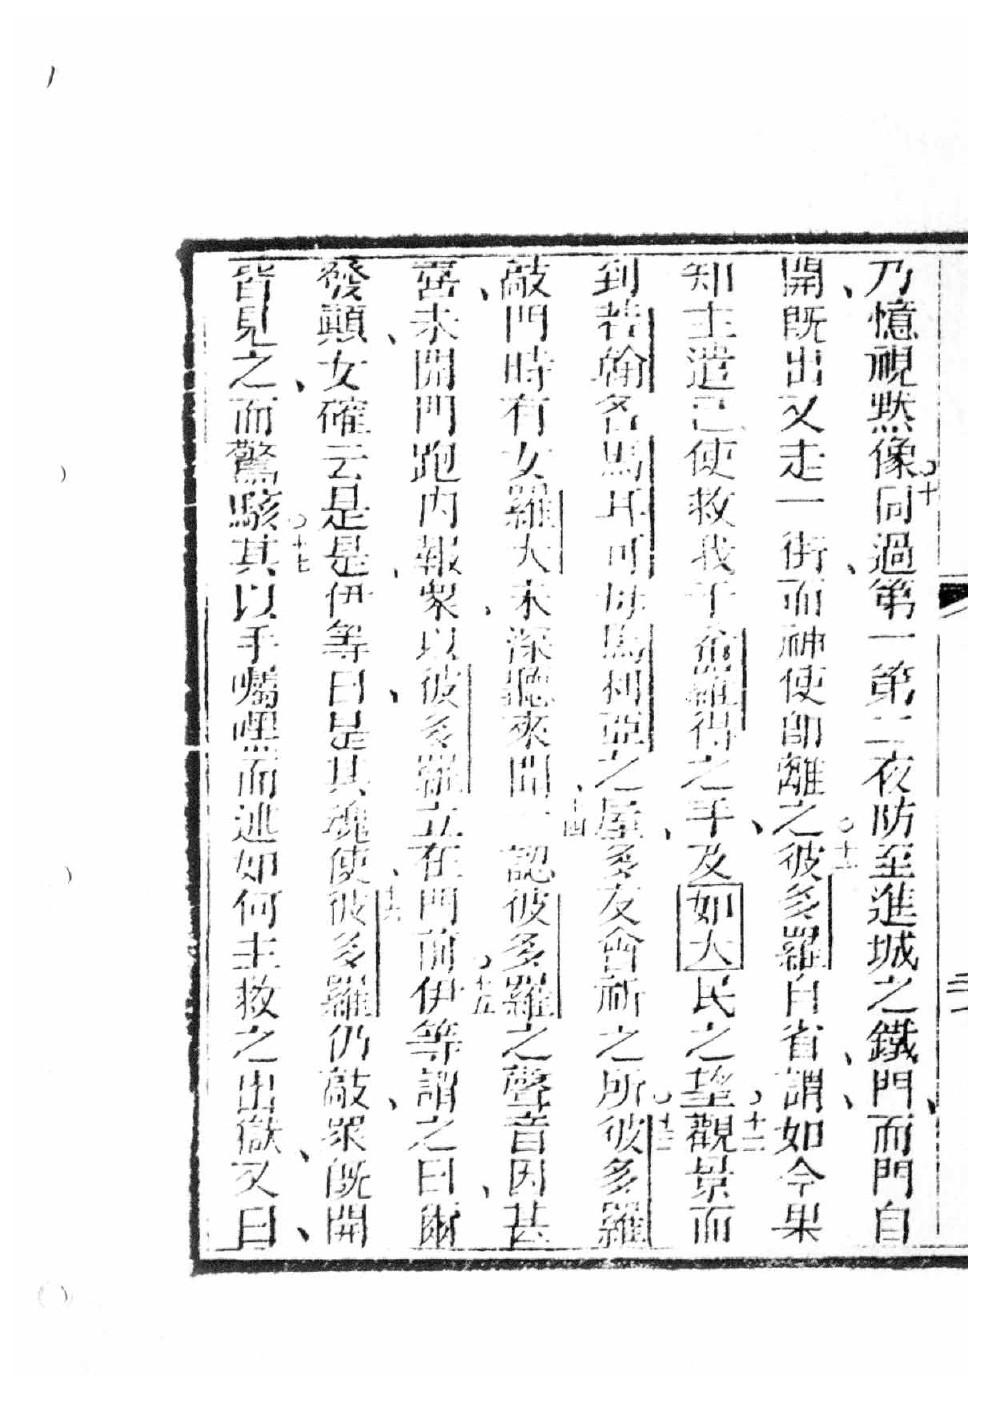 乃憶視黙像○十同過第一第二夜防至進城之鐵門、而門自
開、既出又走一街、而神使卽離之○十一彼多羅自省、謂、如今果
知主遣己使救我于希羅得之手、及如大民之望○十二觀景而
到若翰名馬耳可母馬利亞之屋、多友會祈之所○十三彼多羅
敲門時有女羅大來深聽、十四來聞 認彼多羅之聲音、因甚
喜、未開門跑內報衆、以彼多羅立在門前○十五伊等謂之曰、爾
發顛、女確云是是、伊等曰、是其魂使、十六彼多羅仍敲、衆既開
皆見之、而驚駭○十七其以手囑嘿而述如何主救之出獄、又曰、